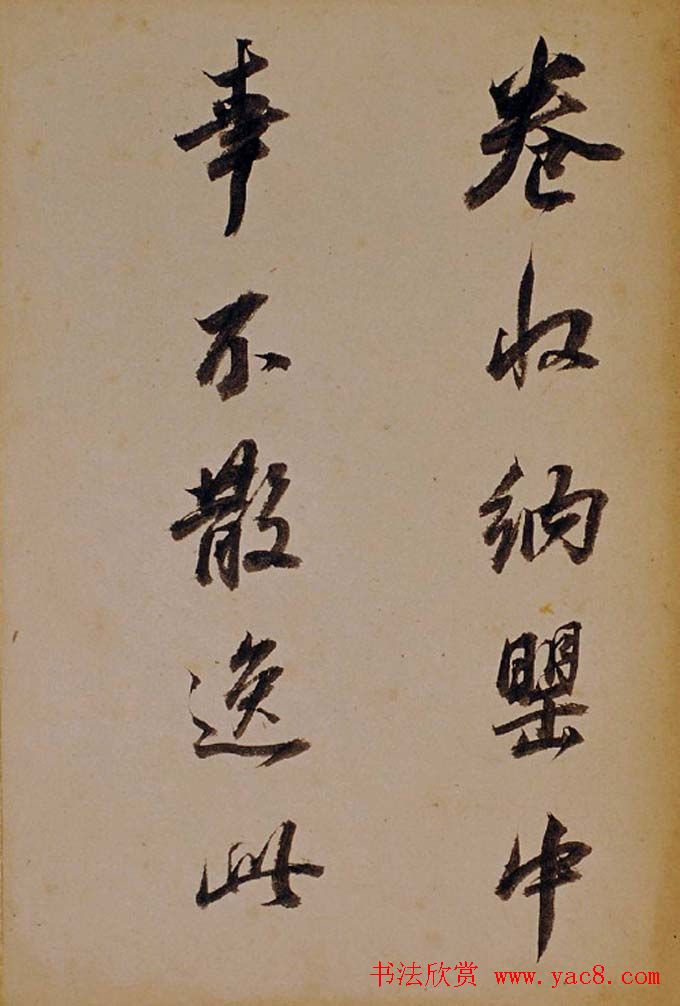 卷收納罌中
幸不散逸此
书法欣赏 www.yac8.com